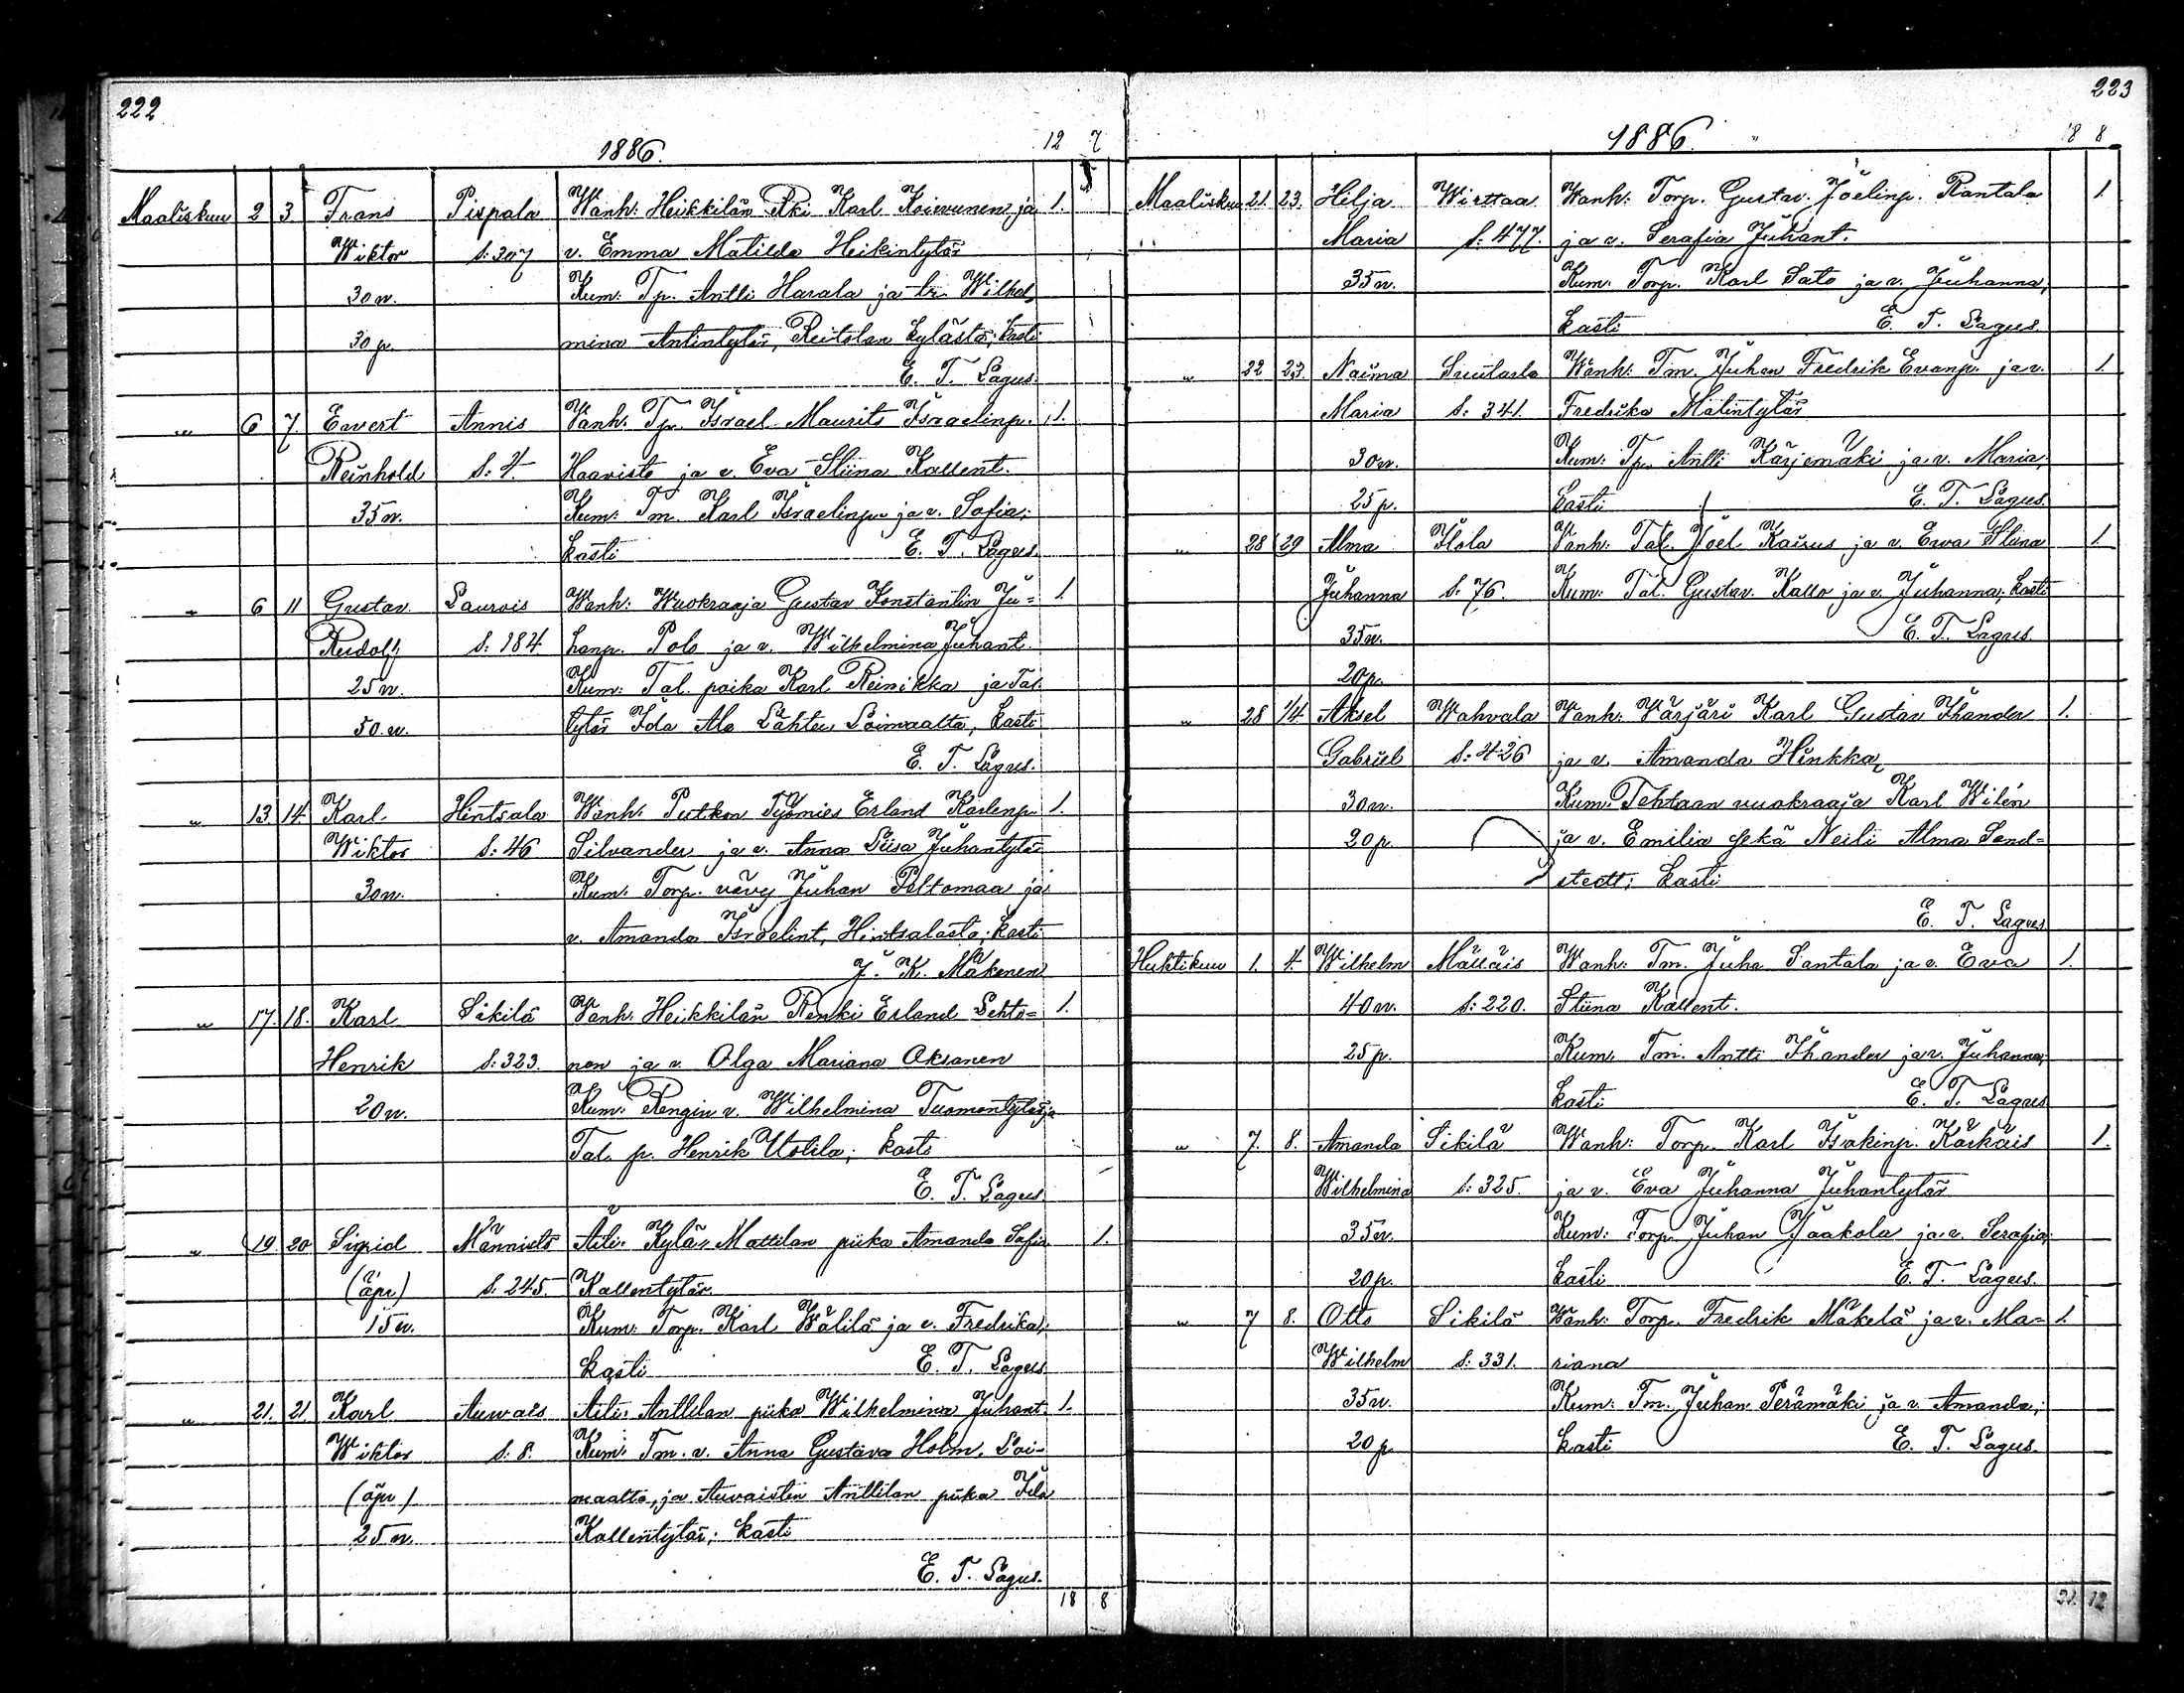 222
1886. 12 7
Maaliskuu 2 3 Frans Pispala Wanh: Heikkilän Rki Karl Koivunen ja 1.
Wiktor S: 307 v. Emma Matilda Heikintytär
30 v. Kum: Tp. Antti Harala ja tr. Wilhel-
30 p. mina Antintytär, Reitolan kylästä; kasti
E. T. Lagus.
" 6 7 Evert Annis Vanh: Tp. Israel Maurits Israelinp. 1.
Reinhold S: 4. Haavisto ja v. Eva Stiina Kallent.
35 v. Kum: Tm. Karl Israelinp. ja v. Sofia;
kasti E. T. Lagus
" 6 11 Gustav Laurois Wanh: Wuokraaja Gustav Konstantin Ju= 1.
Rudolf S: 184 hanp. Polo ja v. Wilhelmina Juhant.
25 v. Kum: Tal. poika Karl Reinikka ja Tal.
50. v. tytär Ida Ala Lähte Loimaalta, kasti
E. T. Lagus.
" 13 14 Karl Hintsala Wanh: Putkon Työmies Erland Karlenp. 1.
Wiktor S: 46 Silvander ja v. Anna Liisa Juhantytär
30 v. Kum: Torp. vävy Juhan Peltomaa ja
v. Amanda Israelint, Hintsalasta; kasti
J. K. Mäkinen
" 17. 18. Karl Sikilä Vanh: Heikkilän Renki Erland Lehto= 1.
Henrik S: 323. nen ja v. Olga Mariana Oksanen
20 v. Kum: Rengin v. Wilhelmina Tuomontytär ja
Tal. p. Henrik Uotila; kasti
E. T. Lagus.
" 19. 20 Sigrid Männistö Äiti: Kylä-Mattilan piika Amanda Sofia 1.
(äpr) S. 245. Kallentytär
15 v. Kum: Torp. Karl Wälilä ja v. Fredrika;
kasti E. T. Lagus
" 21. 21 Karl Auvais Äiti: Anttilan piika Wilhelmina Juhant. 1.
Wiktor S: 8. Kum: Tm. v. Anna Gustava Holm, Loi-
(äpr) maalta, ja Auvaisten Anttilan piika Ida
25 v. Kallentytär; kasti
E. T. Lagus.
18 8
223
1886. 18 8
Maaliskuu 21. 23. Hilja Wirttaa Wanh: Torp. Gustav Joelinp. Rantala 1
Maria S: 477. ja v. Serafia Juhant.
35 v. Kum: Torp. Karl Sato ja v. Juhanna;
kasti E. T. Lagus.
" 22 23. Naima Suutarla Wanh: Tm. Juhan Fredrik Evanp. ja v. 1
Maria S: 341. Fredrika Matintytär
30 v. Kum: Tp. Antti Karjemäki ja v. Maria;
25 p. kasti E. T. Lagus
" 28 29 Alma Ilola Vanh: Tal. Joel Kairus ja v. Eva Stiina 1.
Juhanna S: 76. Kum: Tal. Gustav Kallo ja v. Juhanna; kasti
35 v. E. T. Lagus.
20 p.
" 28 1/4 Aksel Wahvala Vanh: Värjäri Karl Gustav Ihander 1.
Gabriel S: 426 ja v. Amanda Hinkka
30 v. Kum: Tehtaan vuokraaja Karl Wilén
20 p. ja v. Emilia sekä Neili Alma Send=
stedt; kasti
E. T. Lagus
Huhtikuu 1. 4. Wilhelm Mälläis Wanh: Tm. Juha Santala ja v. Eva 1.
40 v. S: 220. Stiina Kallent.
25 p. Kum: Tm. Antti Ihander ja v. Juhanna;
kasti E. T. Lagus
" 7. 8. Amanda Sikilä Wanh: Torp. Karl Isakinp. Karkäis 1.
Wilhelmina S: 325. ja v. Eva Juhanna Juhantytär
35 v. Kum: Torp. Juhan Jaakola ja v. Serafia;
20 p. kasti E. T. Lagus.
" 7 8. Otto Sikilä Wanh: Torp. Fredrik Mäkelä ja v. Ma= 1.
Wilhelm S: 331. riana
35 v. Kum: Tm. Juhan Perämäki ja v. Amanda;
20 p. kasti E. T. Lagus
21. 12